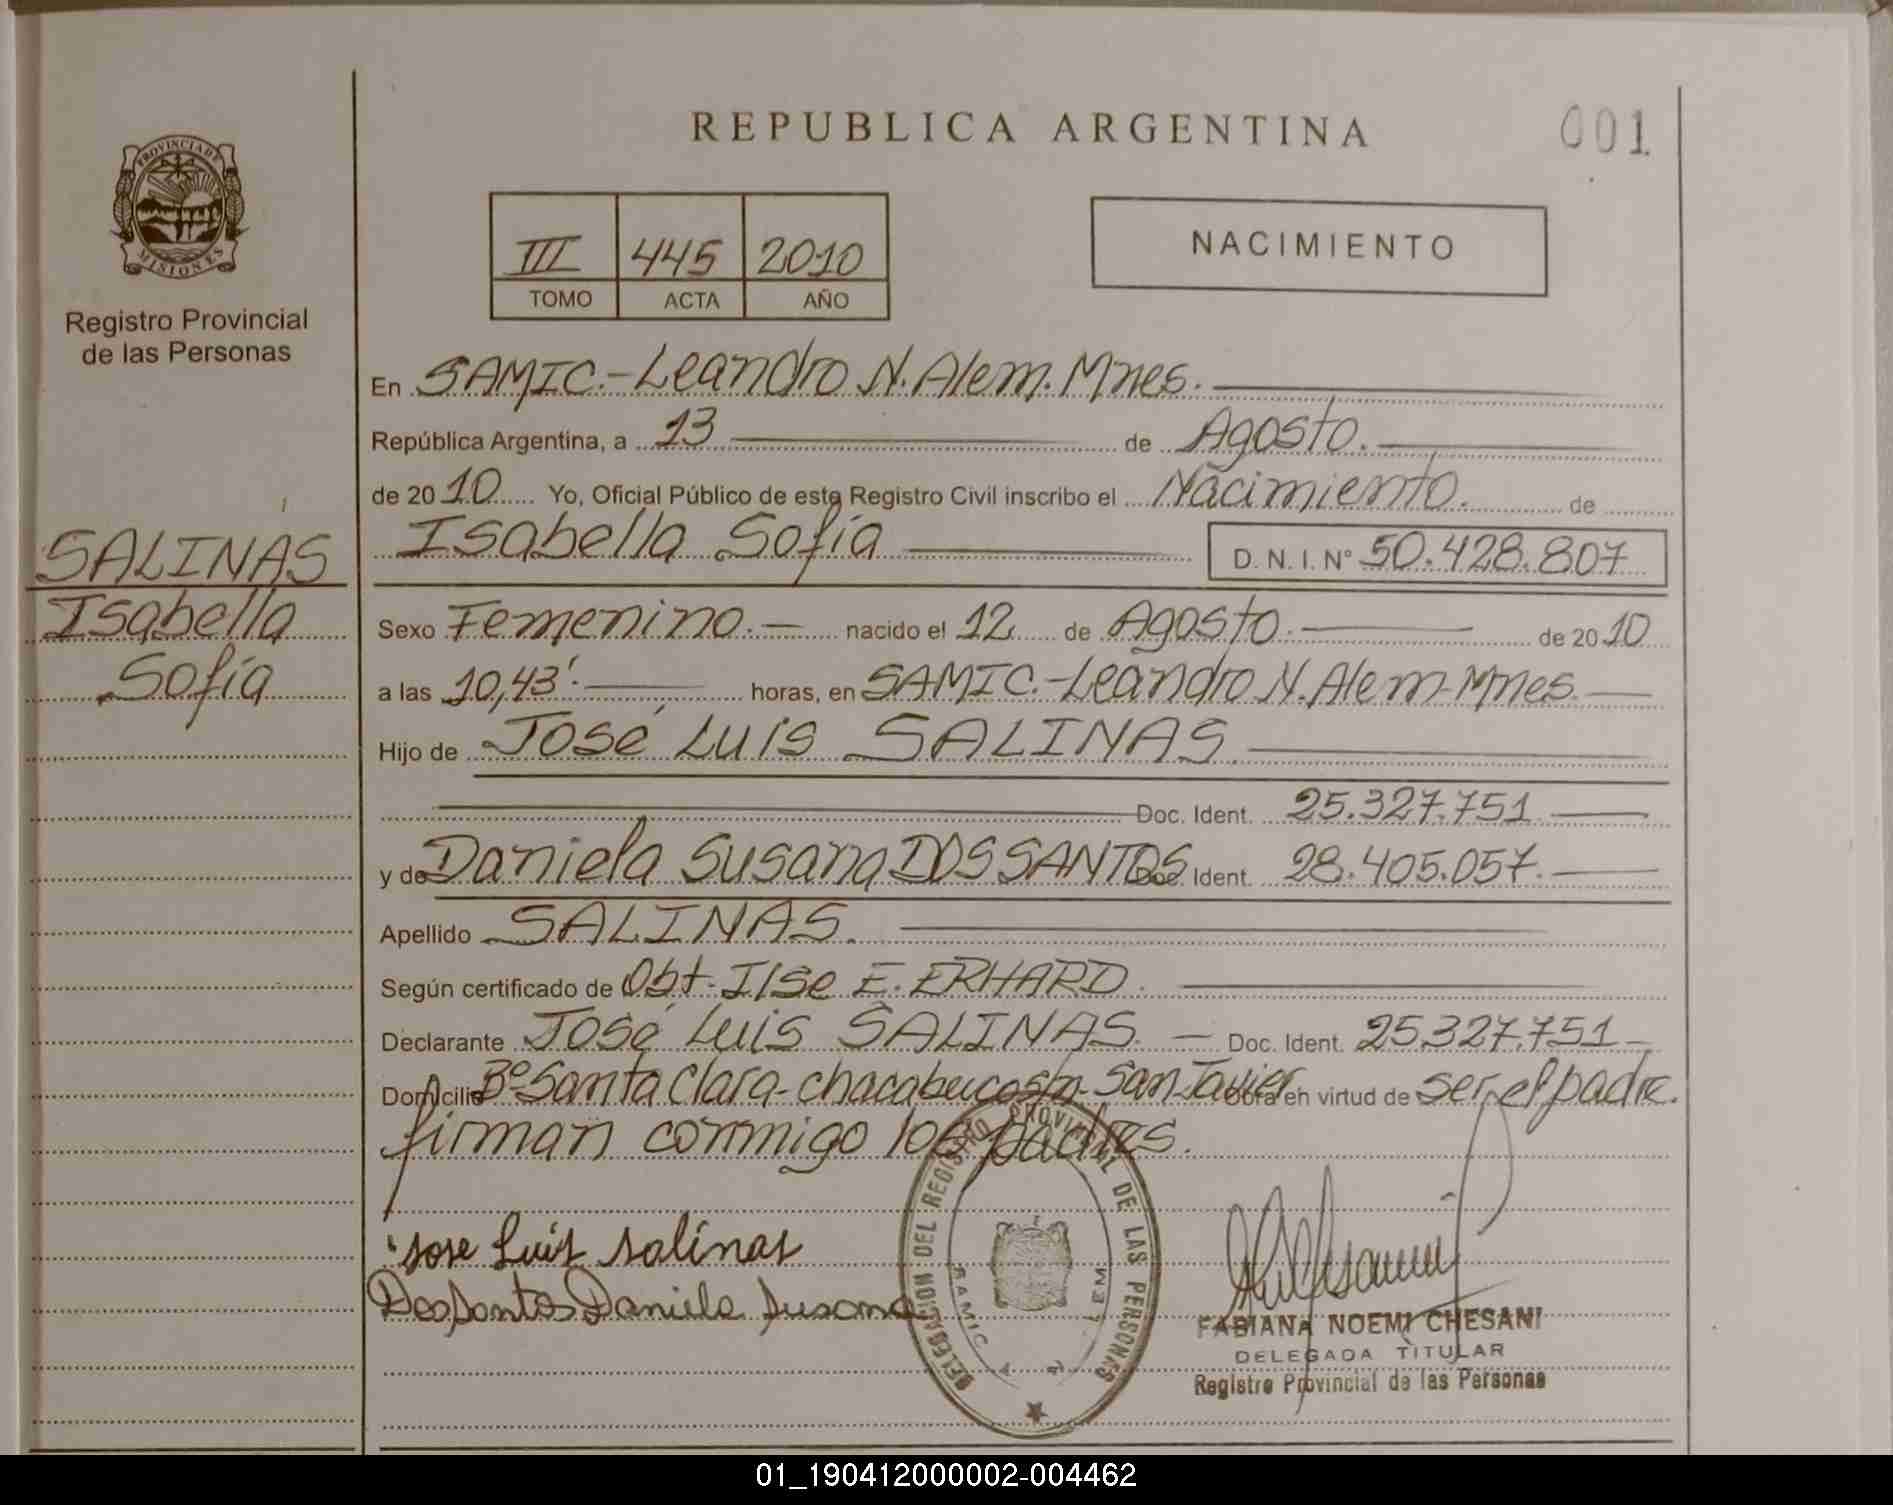 REPUBLICA ARGENTINA
001
PROVINCIA DE
MISIONES
Registro Provincial
de las Personas
III 445 2010
TOMO ACTA AÑO
NACIMIENTO
En SAMIC.-Leandro N. Alem. Mnes.
República Argentina, a 13 de Agosto.
de 2010 Yo, Oficial Público de este Registro Civil inscribo el Nacimiento. de
Isabella Sofía D. N. I. Nº 50.428.807
SALINAS
Isabella
Sofía
Sexo Femenino.- nacido el 12 de Agosto. de 2010
a las 10,43'. horas, en SAMIC.-Leandro N. Alem-Mnes.
Hijo de José Luis SALINAS.
Doc. Ident. 25.327.751
y de Daniela Susana DOS SANTOS Doc. Ident. 28.405.057.
Apellido SALINAS.
Según certificado de Obt. Ilse E. ERHARD.
Declarante José Luis SALINAS. - Doc. Ident. 25.327.751-
Domicilio Bº Santa Clara-chacabuco San Javier Obra en virtud de ser el padre.
firman conmigo los padres.
Jose Luis Salinas
Dos Santos Daniela Susana
DELEGACION DEL REGISTRO PROVINCIAL DE LAS PERSONAS
SAMIC ALEM
FABIANA NOEMI CHESANI
DELEGADA TITULAR
Registro Provincial de las Personas
01_190412000002-004462